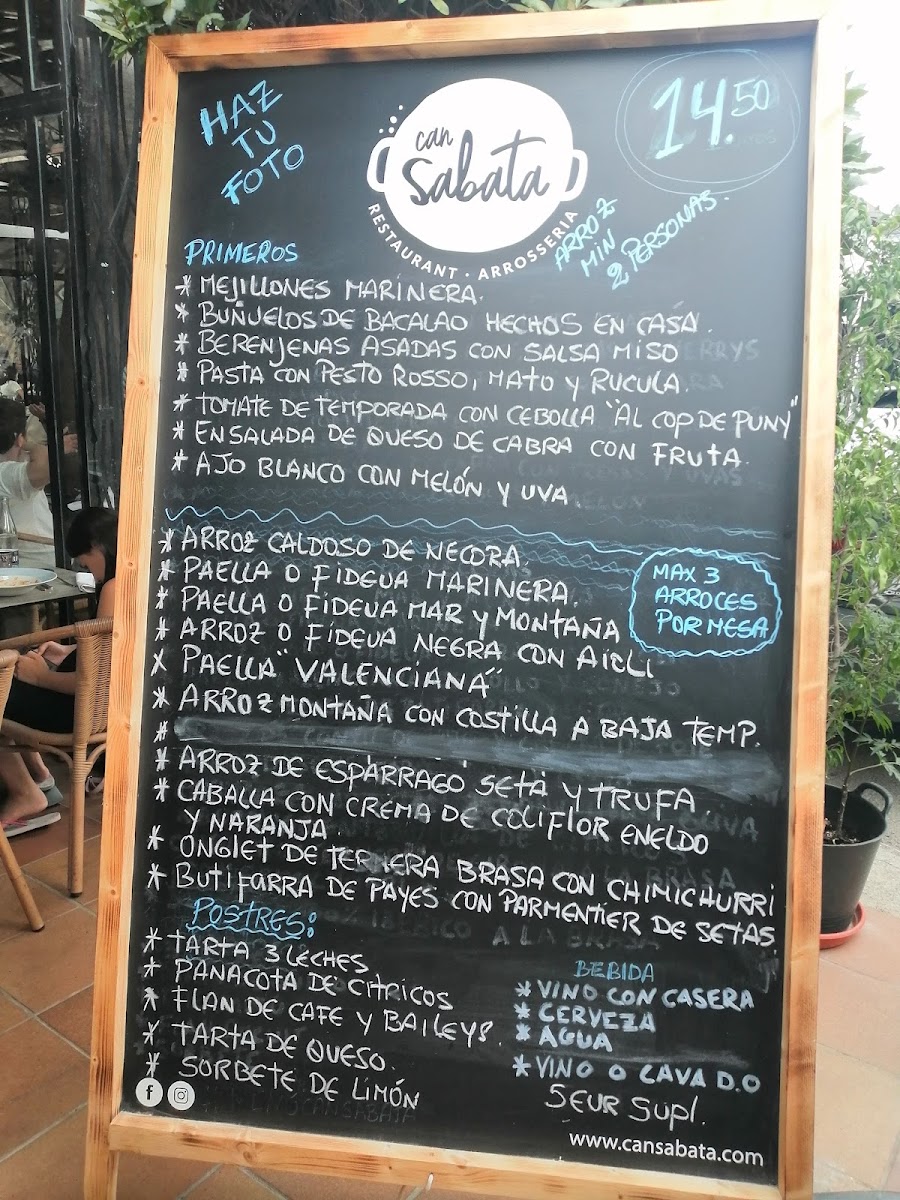 HAZ
TU
FOTO
can
Sabata
RESTAURANT · ARROSSERIA
14.50
ARROZ
MIN
2 PERSONAS.
PRIMEROS
* MEJILLONES MARINERA.
* BUÑUELOS DE BACALAO HECHOS EN CASA.
* BERENJENAS ASADAS CON SALSA MISO
* PASTA CON PESTO ROSSO, MATO Y RUCULA.
* TOMATE DE TEMPORADA CON CEBOLLA "AL COP DE PUNY"
* ENSALADA DE QUESO DE CABRA CON FRUTA.
* AJO BLANCO CON MELÓN Y UVA.
* ARROZ CALDOSO DE NECORA.
* PAELLA O FIDEUA MARINERA.
* PAELLA O FIDEUA MAR Y MONTAÑA
* ARROZ O FIDEUA NEGRA CON AIOLI
* PAELLA "VALENCIANA"
* ARROZ MONTAÑA CON COSTILLA A BAJA TEMP.
MAX 3
ARROCES
POR MESA
*
* ARROZ DE ESPARRAGO SETA Y TRUFA.
* CABALLA CON CREMA DE COLIFLOR ENELDO
Y NARANJA.
* ONGLET DE TERNERA BRASA CON CHIMICHURRI
* BUTIFARRA DE PAYES CON PARMENTIER DE SETAS.
POSTRES:
* TARTA 3 LECHES
* PANACOTA DE CITRICOS
* FLAN DE CAFE Y BAILEYS.
* TARTA DE QUESO.
* SORBETE DE LIMÓN
BEBIDA
* VINO CON CASERA
* CERVEZA
* AGUA
* VINO O CAVA D.O
5EUR SUPL.
www.cansabata.com